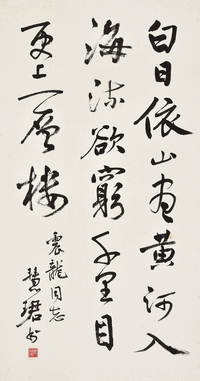 白日依山尽黄河入
海流欲穷千里目
更上一层楼
震龙同志
慧珺书